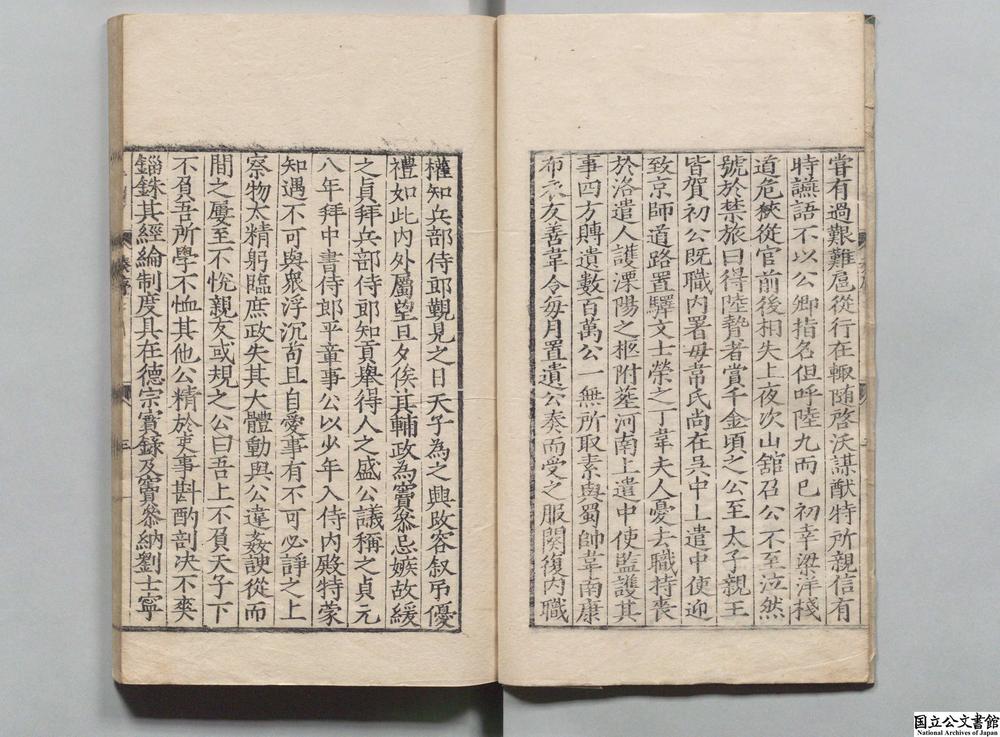 嘗有過艱難扈從行在輙随啓沃謀猷特所親信有
時讌語不以公卿指名但呼陸九而已初幸梁洋棧
道危狹從官前後相失上夜次山舘召公不至泣然
號於禁旅曰得陸贄者賞千金頃之公至太子親王
皆賀初公既職内署毋韋氏尚在吳中上遣中使迎
致京師道路置驛文士榮之丁韋夫人憂去職持喪
於洛遣人護溧陽之柩附葬河南上遣中使監護其
事四方賻遺數百萬公一無所取素與蜀帥韋南康
布衣友善韋令每月置遺公奏而受之服闋復内職
權知兵部侍郎覲見之日天子為之興改容叙吊優
禮如此内外屬望旦夕俟其輔政為竇參忌嫉故緩
之貞拜兵部侍郎知貢舉得人之盛公議稱之貞元
八年拜中書侍郎平章事公以少年入侍内殿特蒙
知遇不可與衆浮沉苟且自愛事有不可必諍之上
察物太精躬臨庶政失其大體動與公違姦諛從而
間之屢至不悅親友或規之公曰吾上不負天子下
不負吾所學不恤其他公精於吏事斟酌剖决不爽
錙銖其經綸制度具在德宗實録及竇參納劉士寧
奏序
三
国立公文書館
National Archives of Japan